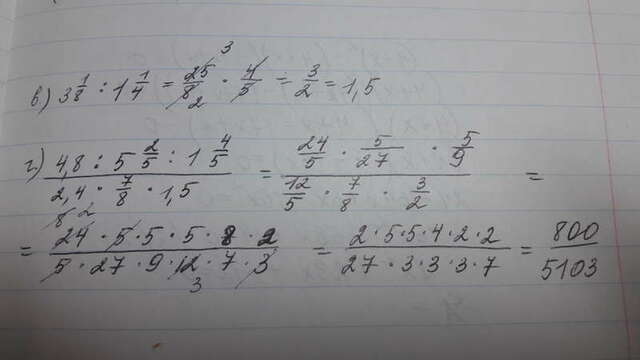 в) 3 1/8 : 1 1/4 = 25/8 · 4/5 = 3/2 = 1,5
3
2
г) 4,8 : 5 2/5 : 1 4/5 / 2,4 · 7/8 · 1,5 = 24/5 · 5/27 · 5/9 / 12/5 · 7/8 · 3/2 =
8 2
= 24 · 5 · 5 · 5 · 8 · 2 / 5 · 27 · 9 · 12 · 7 · 3 = 2 · 5 · 5 · 4 · 2 · 2 / 27 · 3 · 3 · 3 · 7 = 800 / 5103
3